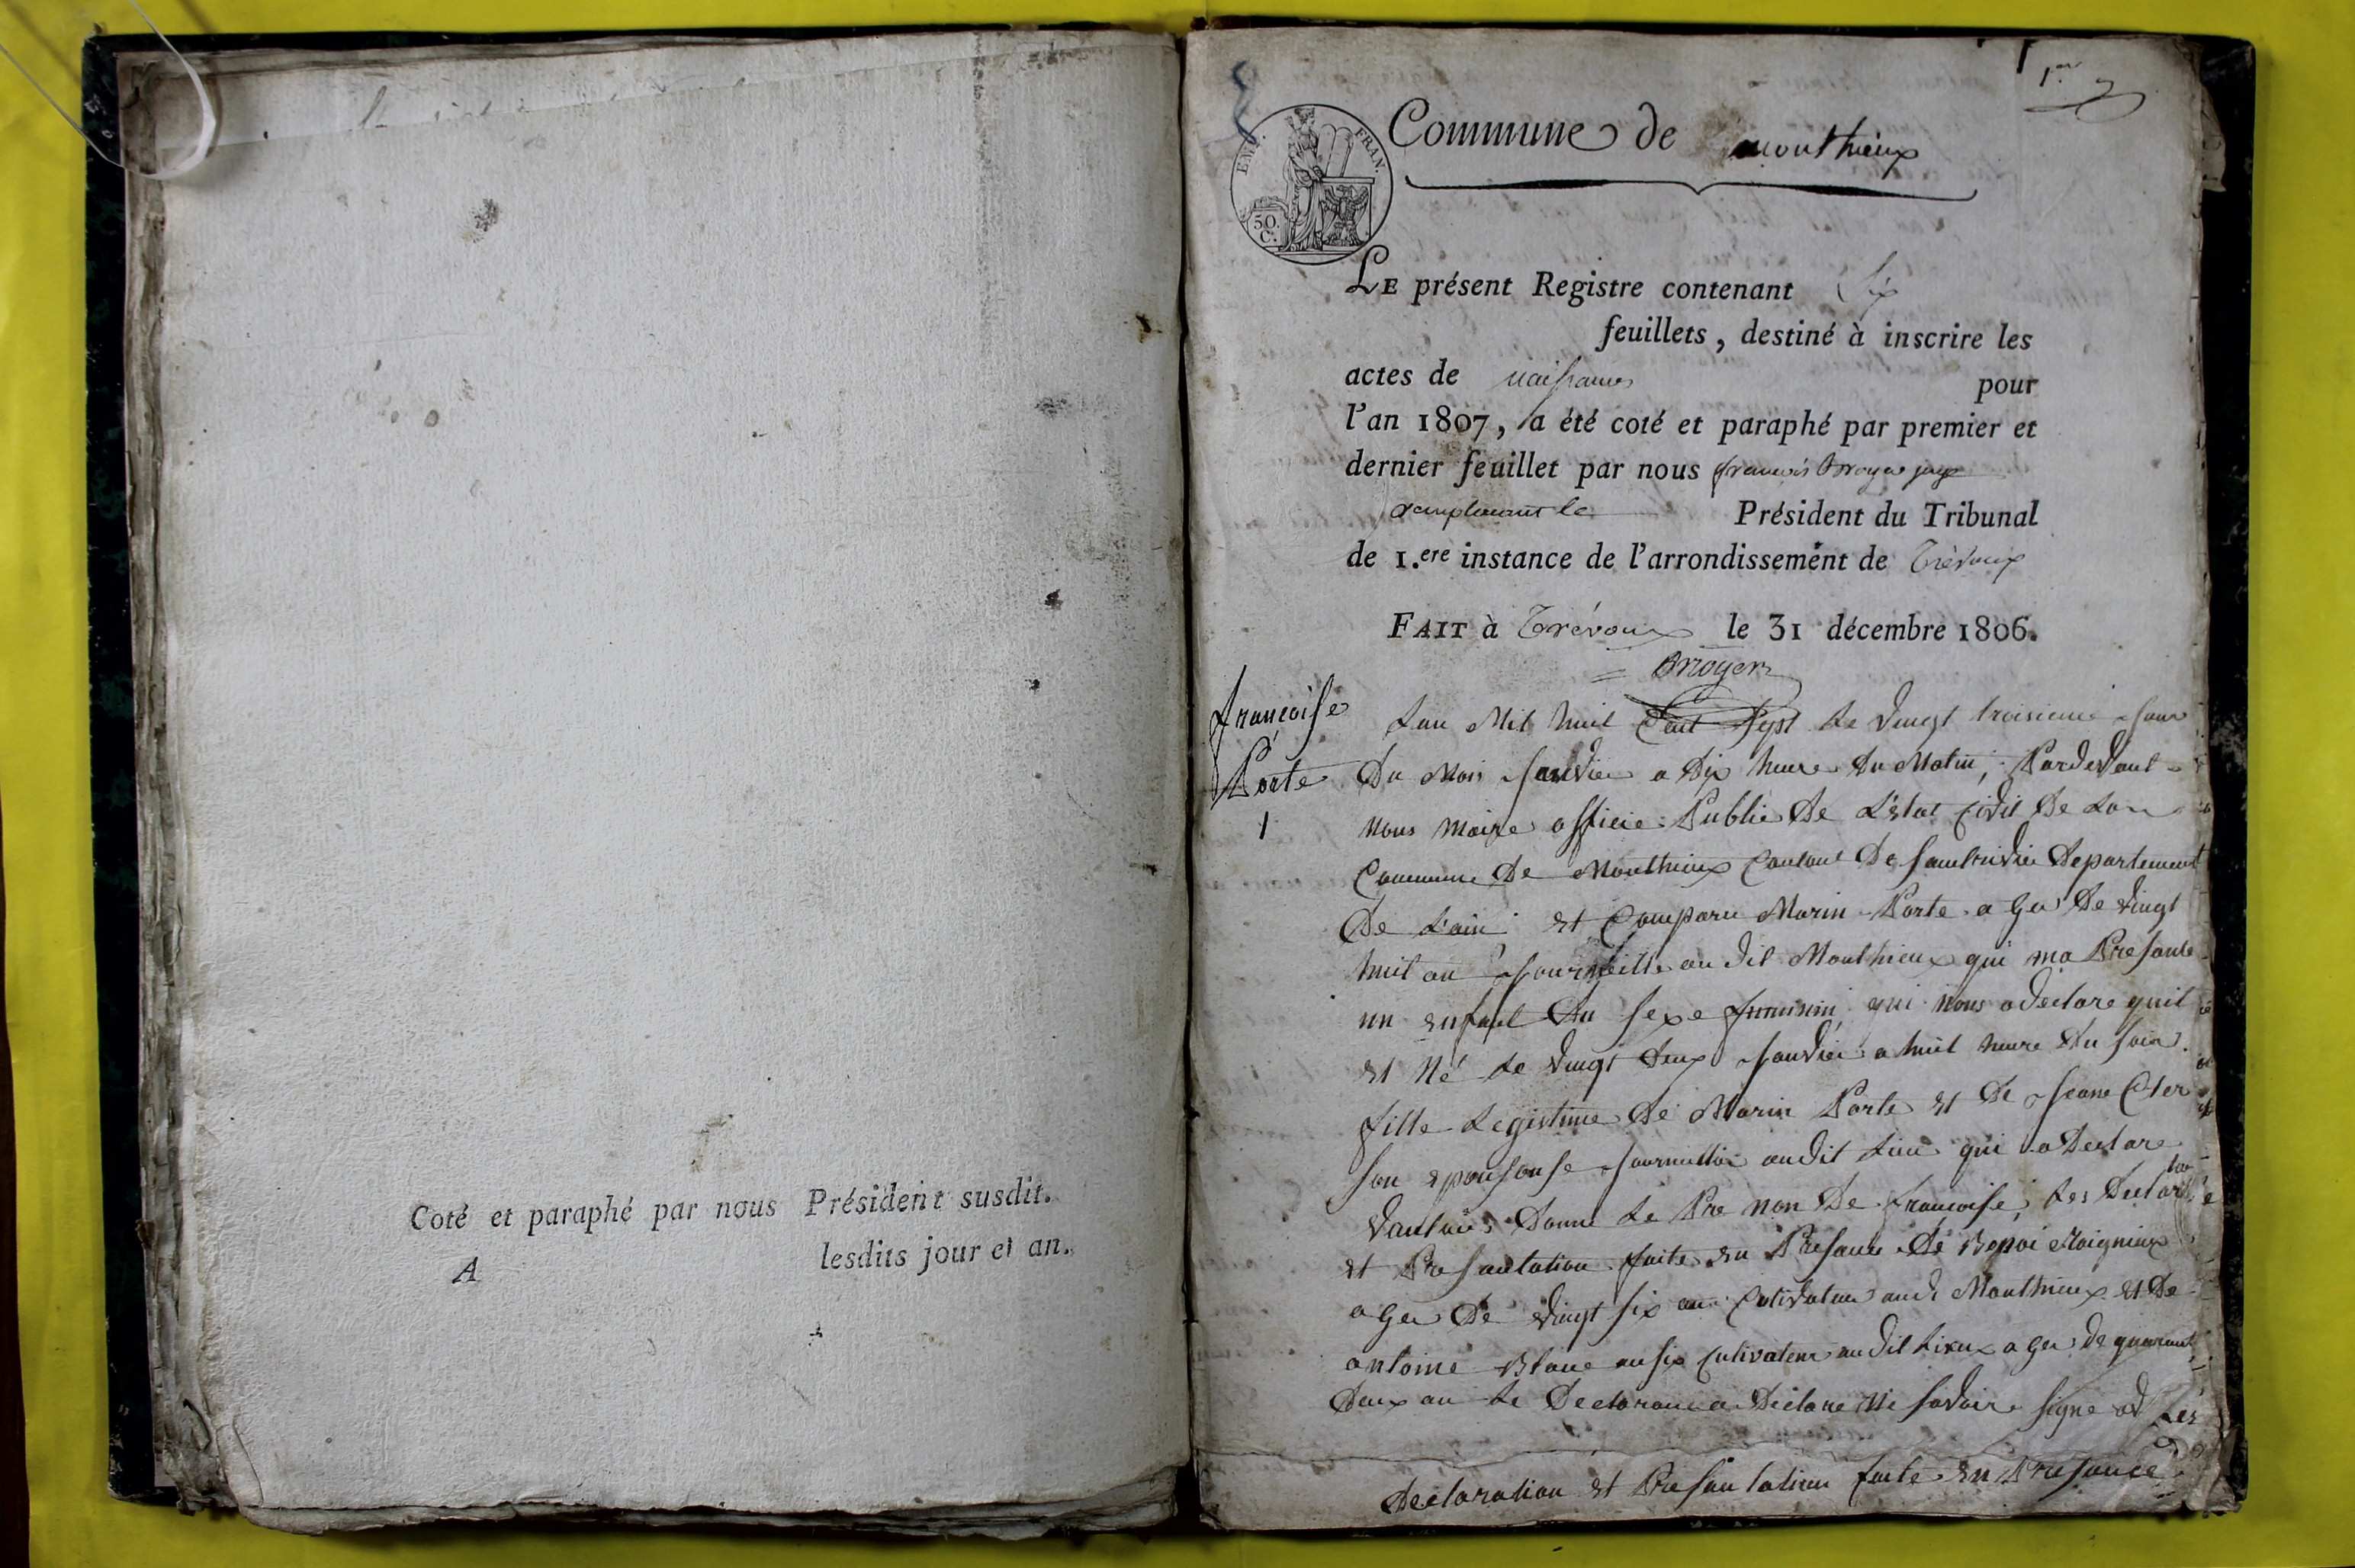 Coté et paraphé par nous Président susdit.
A lesdits jour et an.
1.er
EMP. FRAN.
50 C.
Commune de monthieux
LE présent Registre contenant Six
feuillets, destiné à inscrire les
actes de naissances pour
l'an 1807, a été coté et paraphé par premier et
dernier feuillet par nous françois juge
remplacant le Président du Tribunal
de 1.ere instance de l'arrondissement de Trévoux
FAIT à Trévoux le 31 décembre 1806.
françoise
Porte
1
Lan Mil huit Cent Sept Le vingt troisieme Jour
Du Mois Janvier a Dix heure Du Matin, Pardevant
nous maire officie Public De L'etat Civil De La
Commune De Monthieux Canton De Département
De L'ain est Comparu Marin Porte a Ge De vingt
huit an au dit Monthieux qui ma Presante
un enfant Du sexe qui nous a declare quil
et Né Le vingt Deux Janvier a huit heure Du Soir
fille Legistime De Marin Porte et De Jeane
Son audit Lieu qui a Declare
Donne Le Pre non De francoise, Les
et Presantation faite en Presance De
a Ge De vingt six an Cultivateur Monthieux et De
antoine Blanc Cultivateur au dit Lieux a Ge De quarant
Deux an Le a Declare Ne Savoir signe Les
Declaration et Presantation faite en Presance